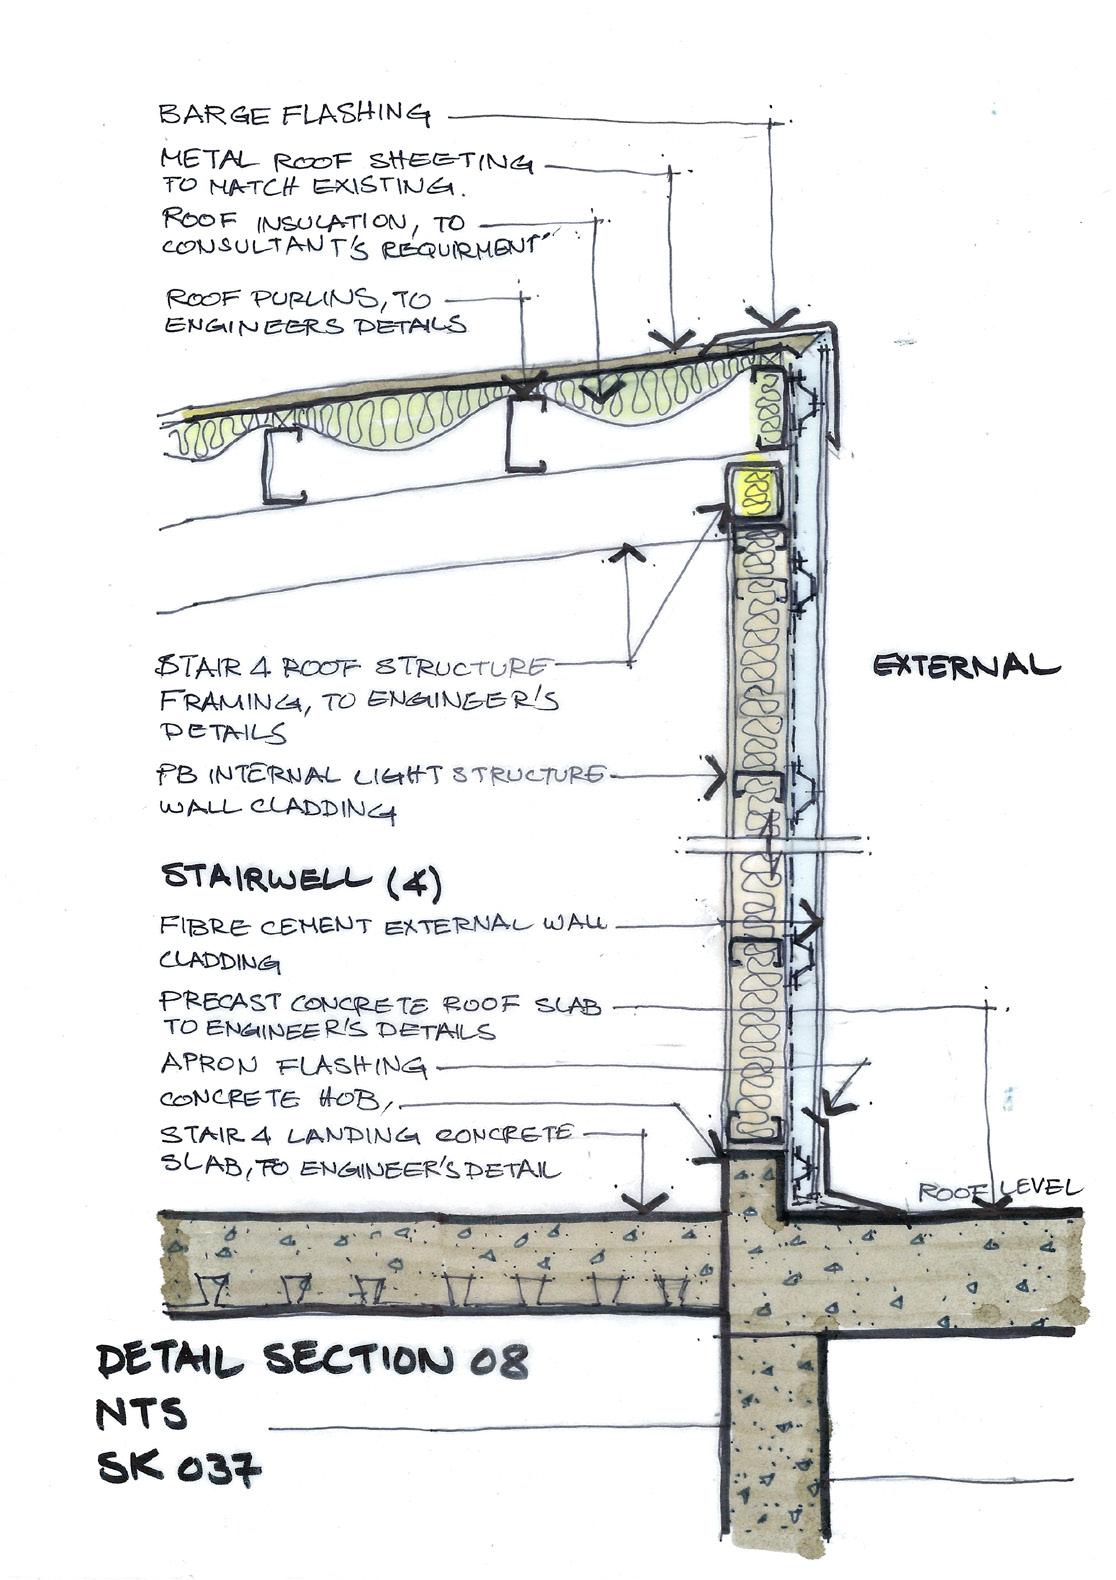 BARGE FLASHING
METAL ROOF SHEETING
TO MATCH EXISTING.
ROOF INSULATION, TO
CONSULTANT'S REQUIRMENT
ROOF PURLINS, TO
ENGINEERS DETAILS
STAIR 4 ROOF STRUCTURE
FRAMING, TO ENGINEER'S
DETAILS
EXTERNAL
PB INTERNAL LIGHT STRUCTURE
WALL CLADDING
STAIRWELL (4)
FIBRE CEMENT EXTERNAL WALL
CLADDING
PRECAST CONCRETE ROOF SLAB
TO ENGINEER'S DETAILS
APRON FLASHING
CONCRETE HOB,
STAIR 4 LANDING CONCRETE
SLAB, TO ENGINEER'S DETAIL
ROOF LEVEL
DETAIL SECTION 08
NTS
SK 037